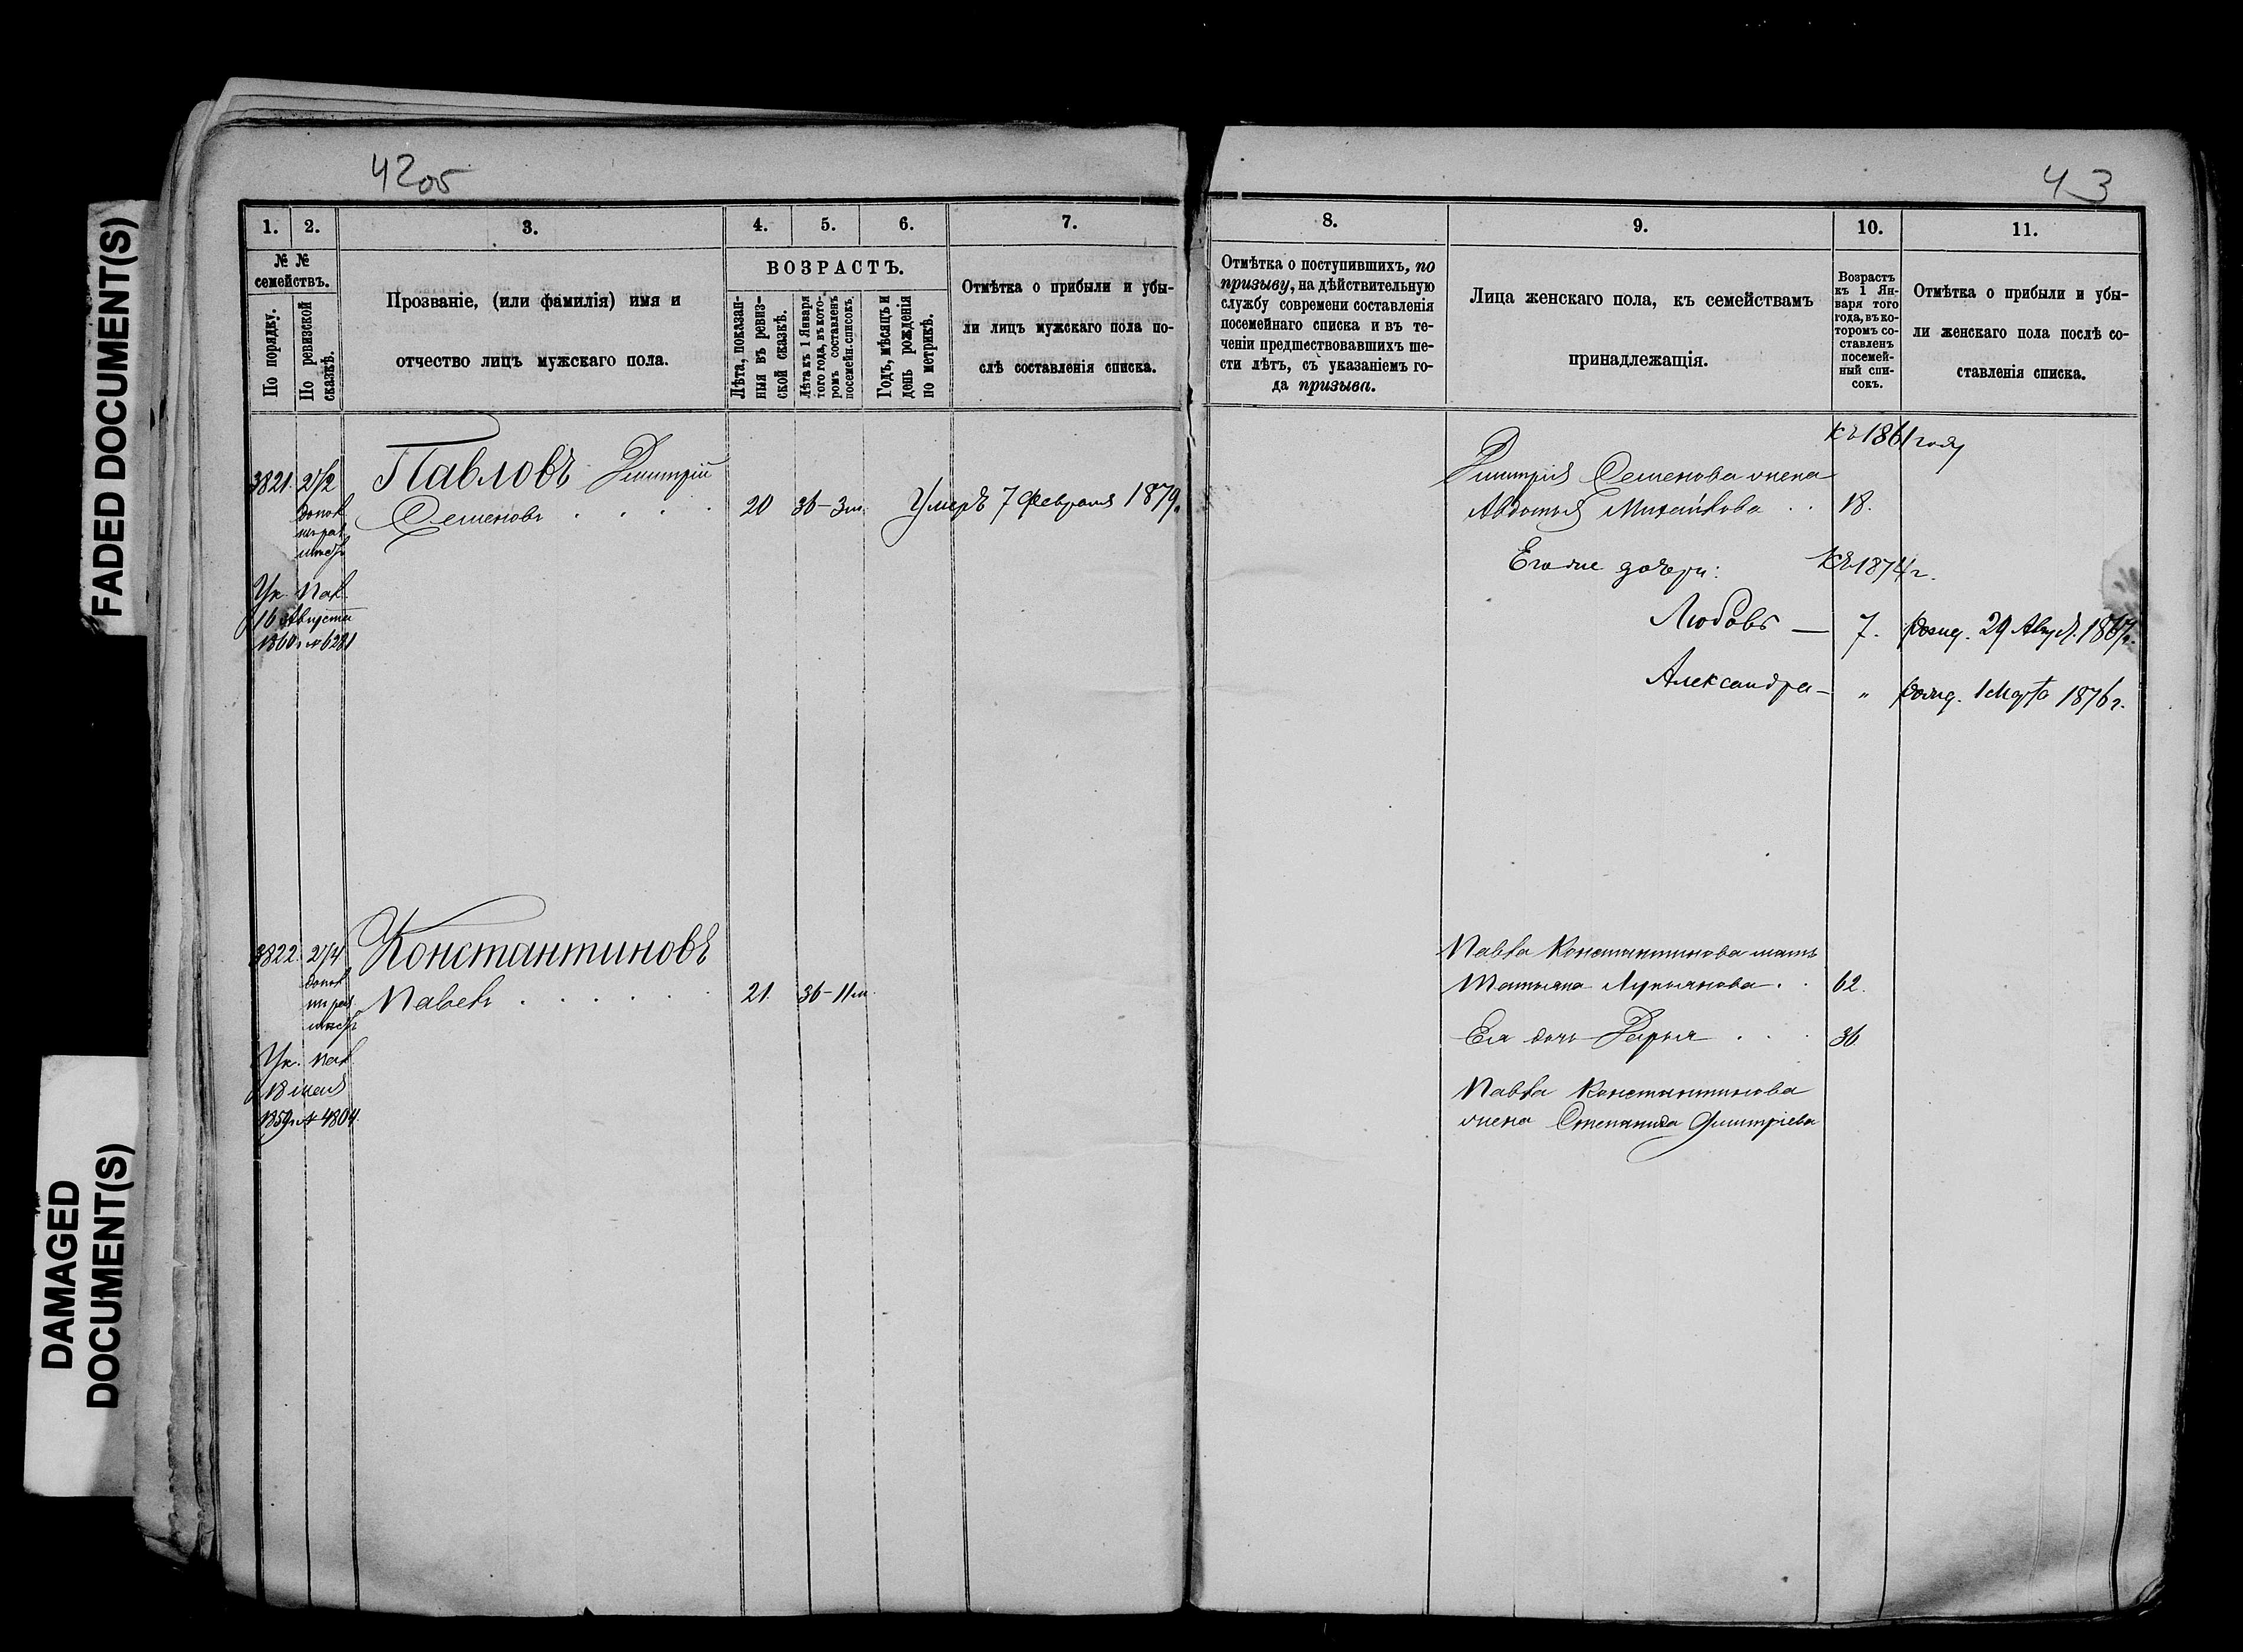 FADED DOCUMENT(S)
DAMAGED
DOCUMENT(S)
42об
1. 2. 3. 4. 5. 6. 7.
№ №
семействъ.
По порядку.
По ревизской
сказкѣ.
Прозваніе, (или фамилія) имя и
отчество лицъ мужскаго пола.
ВОЗРАСТЪ.
Лѣта, показан-
ныя въ ревиз-
ской сказкѣ.
Лѣта къ 1 Января
того года, въ кото-
ромъ составленъ
посемейн. списокъ.
Годъ, мѣсяцъ и
день рожденія
по метрикѣ.
Отмѣтка о прибыли и убы-
ли лицъ мужскаго пола по-
слѣ составленія списка.
3821. Павловъ Дмитрій
Семеновъ . . . . 20 36–3 м. Умеръ 7 Февраля 1879.
Ук. Пал.
16 Августа
1860 г. № 6281
3822. Константиновъ
Павелъ . . . . . . 21. 36–11 м.
Ук. Пал.
18 мая
1859 г. № 4804
43
8. 9. 10. 11.
Отмѣтка о поступившихъ, по
призыву, на дѣйствительную
службу современи составленія
посемейнаго списка и въ те-
ченіи предшествовавшихъ ше-
сти лѣтъ, съ указаніемъ го-
да призыва.
Лица женскаго пола, къ семействамъ
принадлежащія.
Возрастъ
къ 1 Ян-
варя того
года, въ ко-
торомъ со-
ставленъ
посемей-
ный спи-
сокъ.
Отмѣтка о прибыли и убы-
ли женскаго пола послѣ со-
ставленія списка.
Къ 1861 году
Дмитрія Семенова жена
Авдотья Михайлова . . 18.
Его же дочери: Къ 1874 г.
Любовь — 7. рожд. 29 Август. 1867 г.
Александра — „ рожд. 1 Марта 1876 г.
Павла Константинова мать
Татьяна Лукьянова . . 62.
Ея дочь Дарья . . . 36
Павла Константинова
жена Степанида Дмитріева